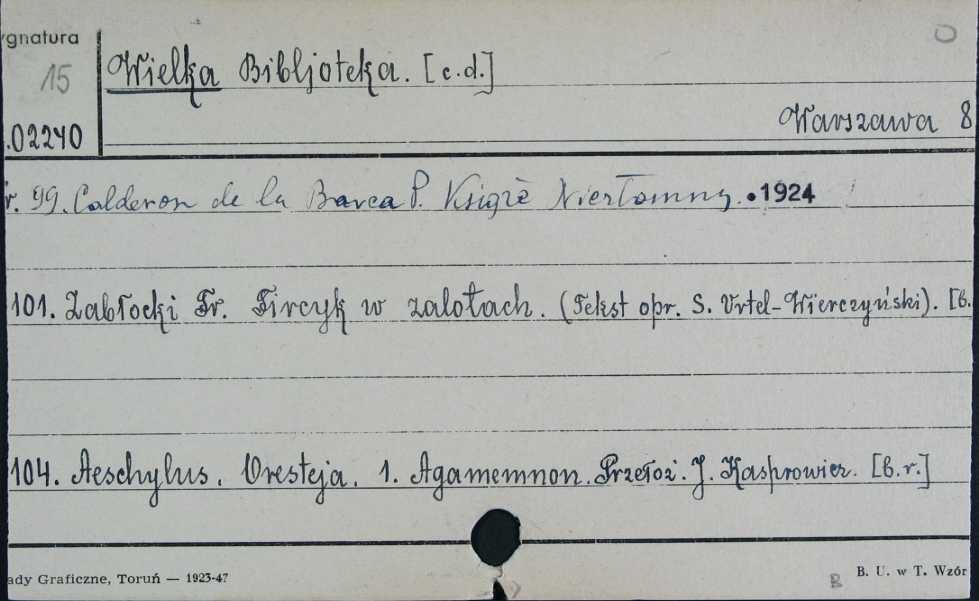 ygnatura
15
Wielka Bibljoteka. [c.d.]
.02240
Warszawa 8
r. 99. Calderon de la Barca P. Książe Niezłomny. •1924
101. Zabłocki Fr. Fircyk w zalotach. (Tekst opr. S. Vrtel-Wierczyński). [b.
104. Aeschylus. Oresteja. 1. Agamemnon. Przełoż. J. Kasprowicz. [b.r.]
ady Graficzne, Toruń — 1923-47
B. U. w T. Wzór